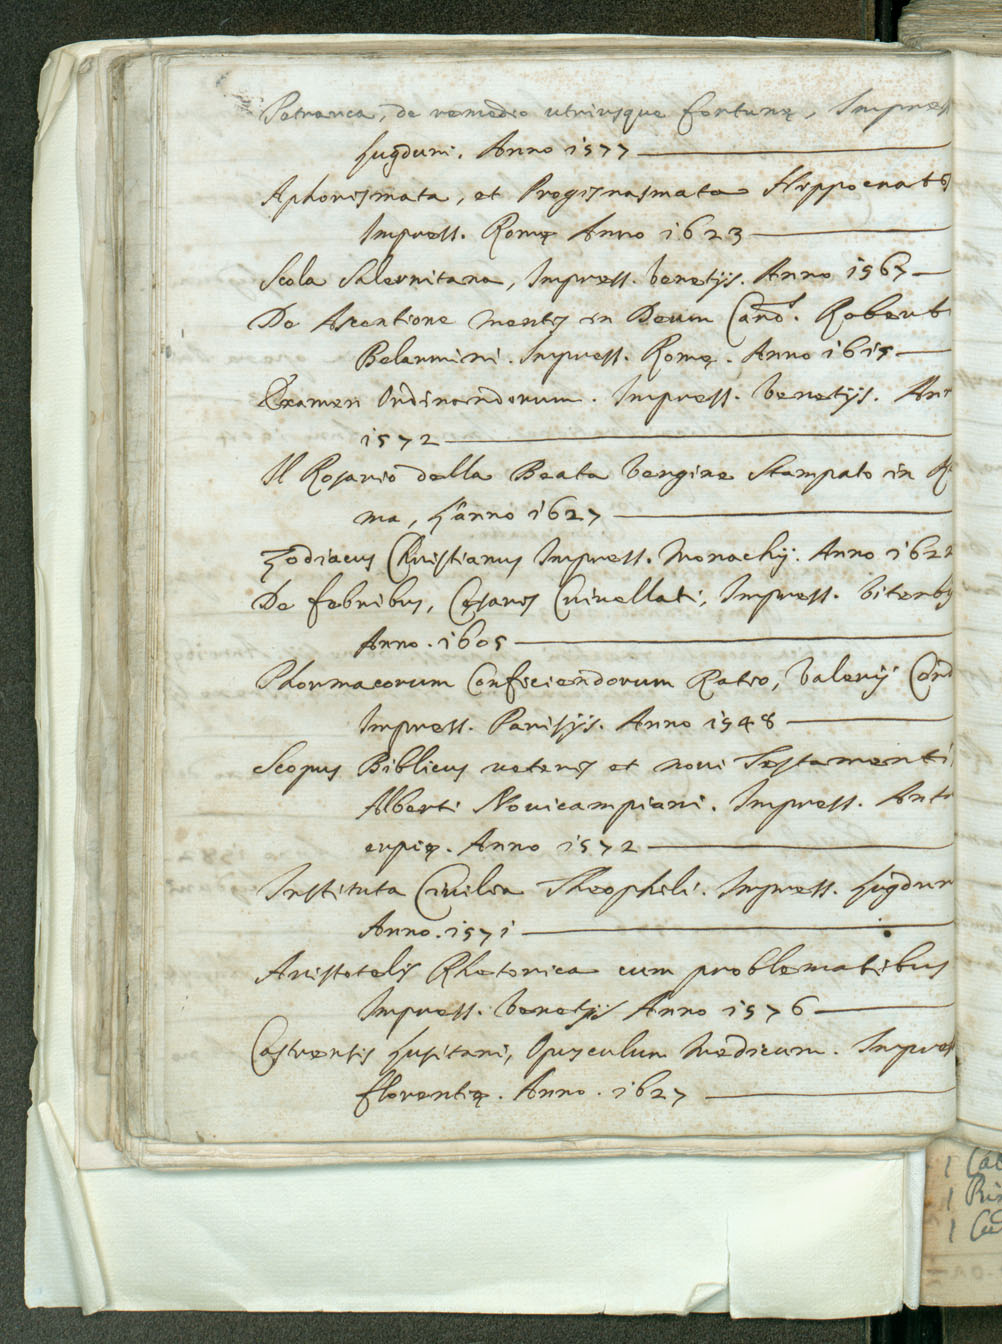 Petrarca, de remedio utriusque fortunę, Impress
Lugduni. Anno 1577
Aphorismata, et Progisnasmata Hippocratis
Impress. Romę Anno 1623
Scola Salernitana, Impress. Venetijs. Anno 1567
De Ascentione mentis in Deum Card. Robert
Belarmini. Impress. Romę. Anno 1615
Examen Ordinandorum. Impress. Venetijs. Ann
1572
Il Rosario della Beata Vergine Stampato in R
ma, L'anno 1627
Zodiacus Christianus Impress. Monachij. Anno 1622
De febribus, Cęsaris Crivellati, Impress. Viterbij
Anno. 1605
Pharmacorum Conficiendorum Ratio, Valerij Cord
Impress. Parisijs. Anno 1548
Scopus Biblicus veteris et novi Testamenti
Alberti Novicampiani. Impress. Antu
erpię. Anno 1572
Instituta Civilia Theophili. Impress. Lugdun
Anno. 1571
Aristotelis Rhetorica cum problematibus
Impress. Venetijs Anno 1576
Castrensis Lusitani, Opusculum Medicum. Impres
florentię. Anno. 1627